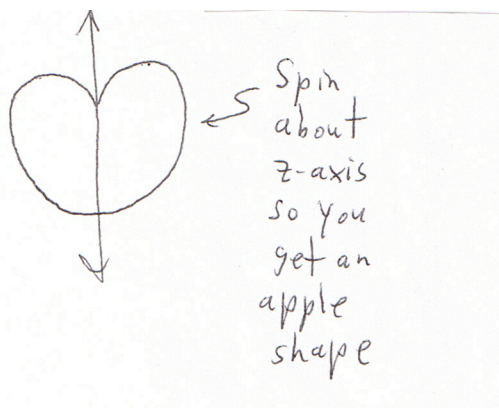 Spin
about
z-axis
so you
get an
apple
shape